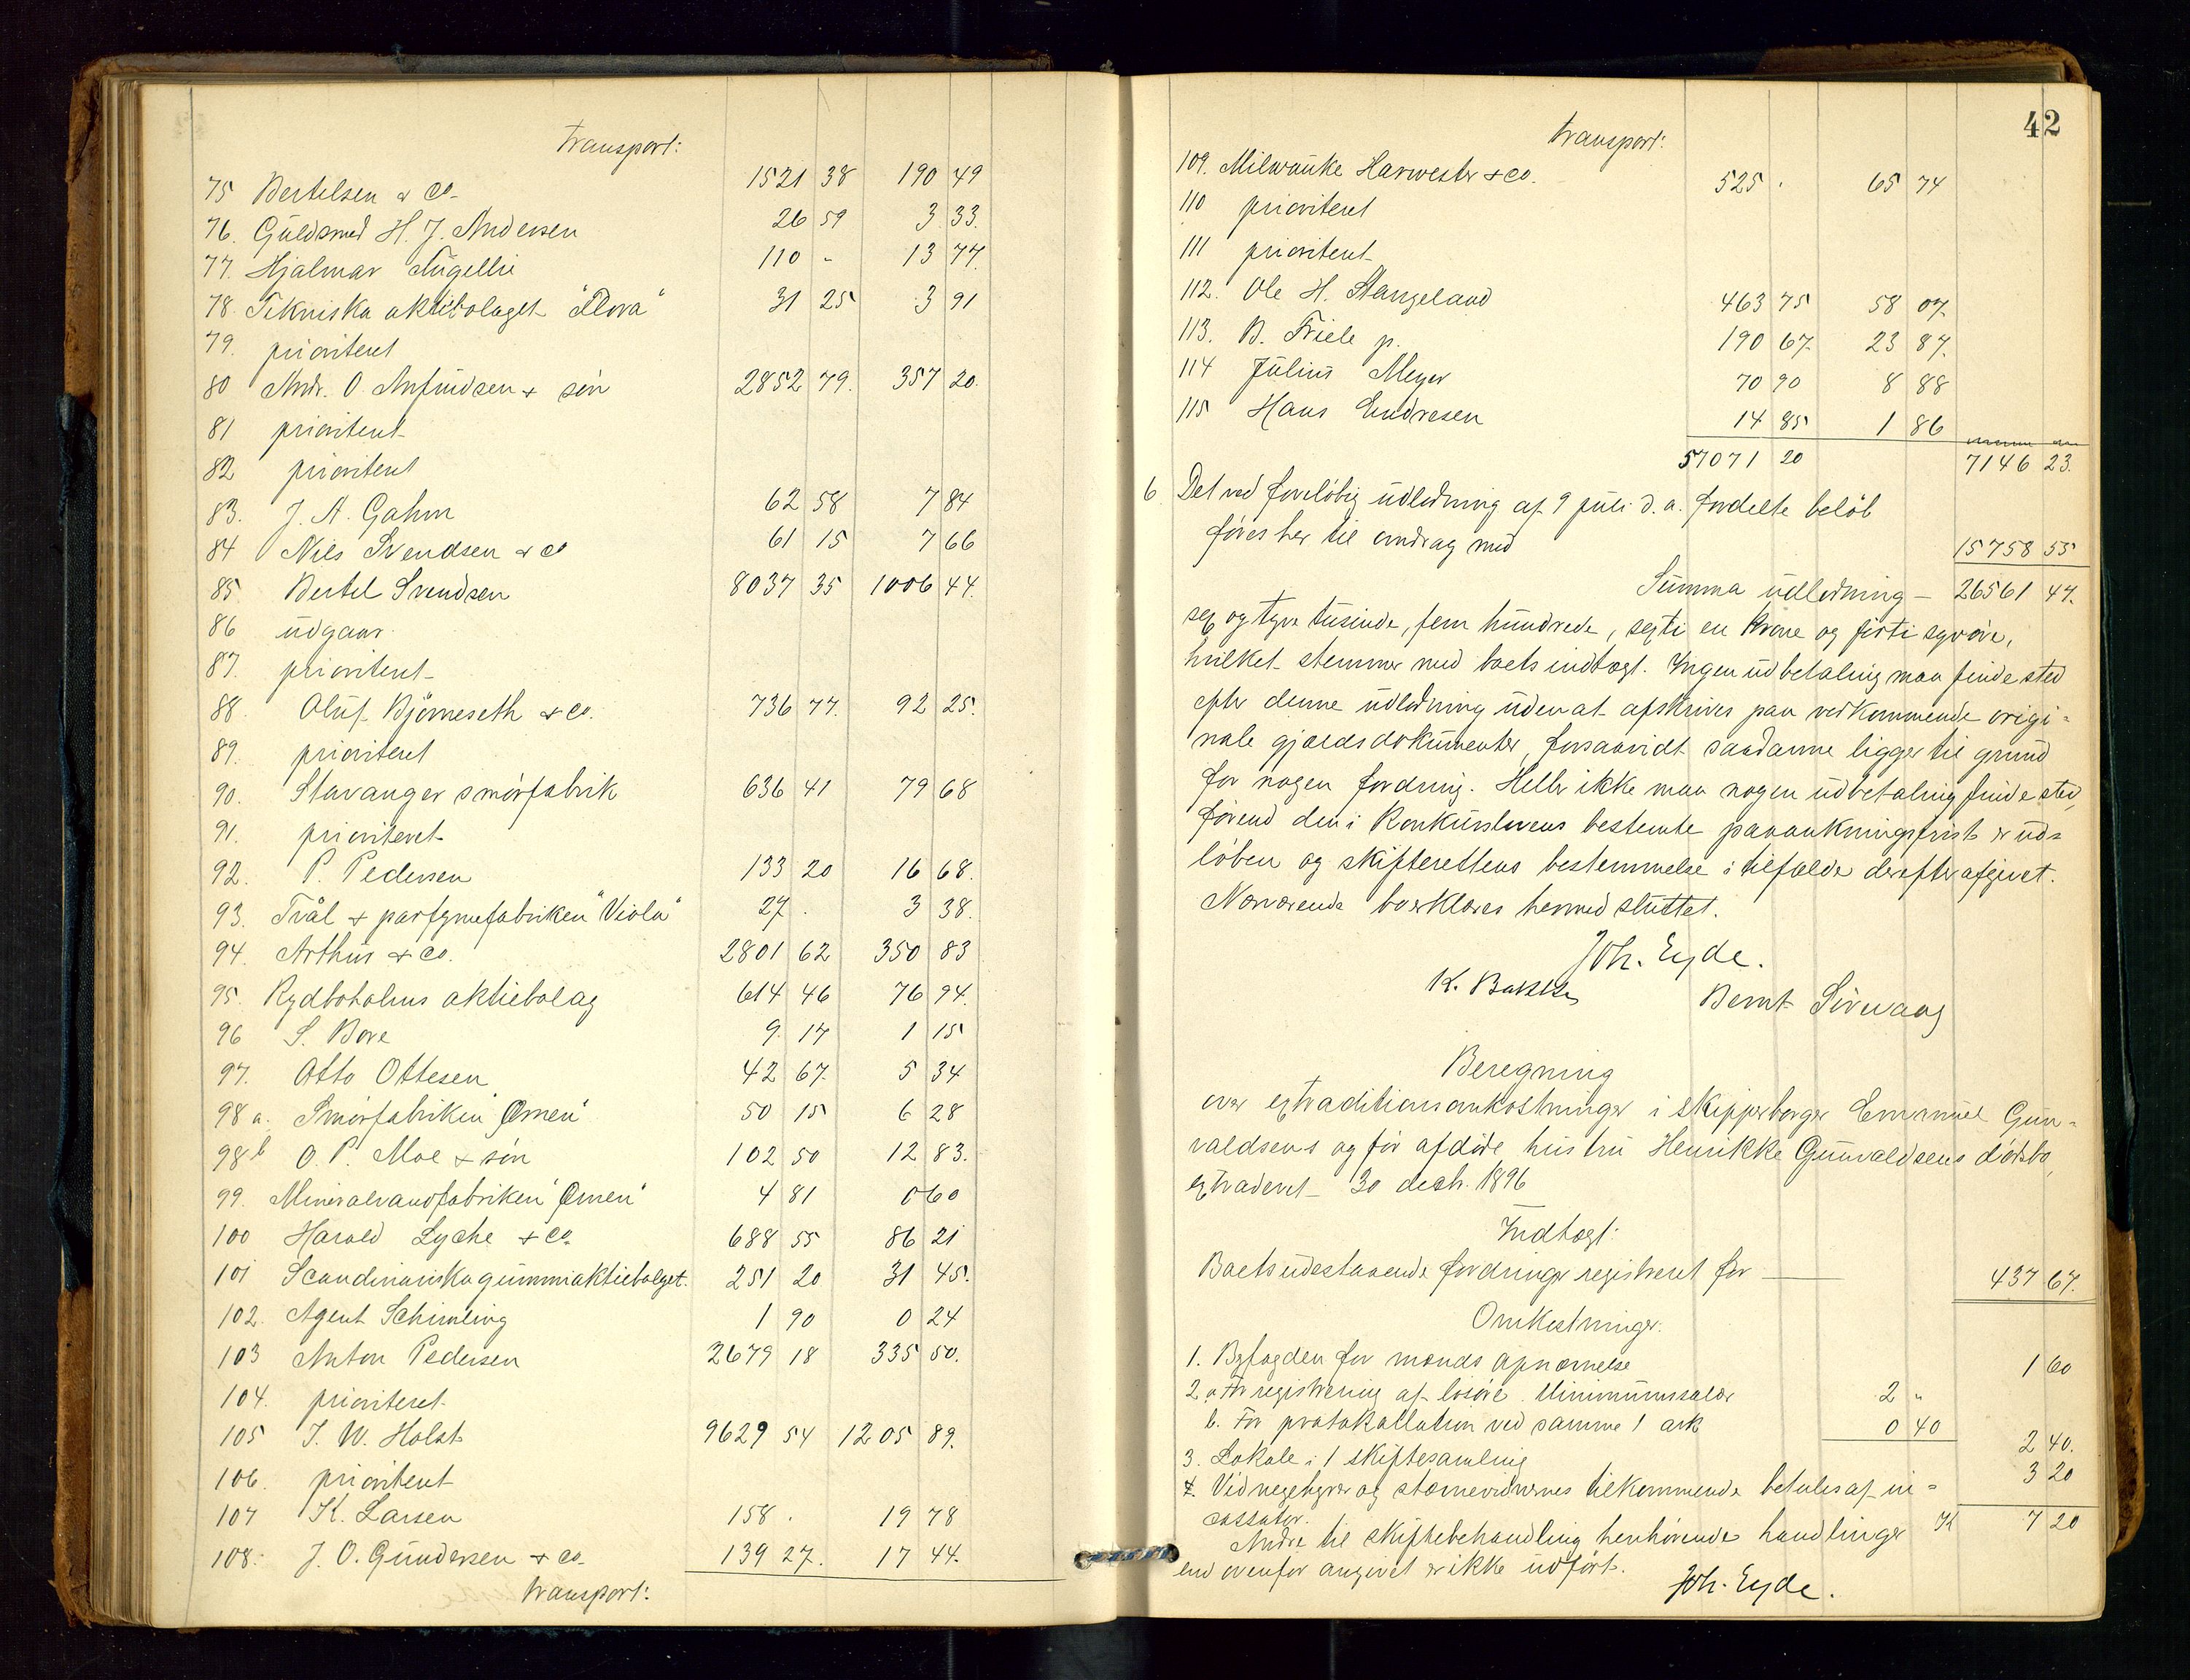 transport:
75 Bertelsen & Co. 1521 38 190 49
76. Guldsmed H. J. Andersen 26 59 3 33.
77. Hjalmar 110 - 13 77.
78. Tekniska aktiebolaget "Flora" 31 25 3 91
79. prioriteret
80 Andr. O. Anfindsen & søn 2852 79. 357 20.
81 prioriteret
82 prioriteret
83. J. A. Gahm 62 58 7 84
84 Nils Svendsen & co 61 15 7 66
85. Bertel Svendsen 8037 35 1006 44.
86 udgaar
87. prioriteret
88. Oluf Björneseth & co. 736 77. 92 25.
89. prioriteret
90. Stavanger smörfabrik 636 41 79 68
91. prioriteret
92. P. Pedersen 133 20 16 68.
93. Tvål & parfymefabriken "Viola" 27 . 3 38.
94. Arthur & co. 2801 62 350 83
95. Rydboholms aktiebolag 614 46 76 94.
96 S. Bore 9. 17 1 15
97. Otto Ottesen 42 67. 5 34
98 a. Smørfabriken "Ørnen" 50 15 6 28
98 b O. P. Moe & søn 102 50 12 83.
99. Mineralvandfabriken "Ørnen" 4 81 0 60
100 Harald Lyche & Co. 688 55 86 21
101 Scandinaviska gummiaktiebolget. 251 20 31 45.
102. Agent Schimling 1 90 0 24
103 Anton Pedersen 2679 18 335 50.
104. prioriteret
105 J. W. Holst 9629 54 1205 89.
106. prioriteret
107 K. Larsen 158 . 19 78
108. J. O. Gundersen & co. 139 27. 17 44.
transport:
42
transport:
109. Milwauke Harwester & co. 525 . 65 74
110 prioriteret
111 prioriteret
112. Ole H. Stangeland 463 75 58 07.
113. B. Friele p. 190 67. 23 87.
114 Julius Meyer 70 90 8 88
115 Hans Endresen 14 85 1 86
57071 20 7146 23.
6. Det ved foreløbig udlodning af 9 juli d. a. fordelte beløb
føres her til omdrag med 15758 55
Summa udlodning - 26561 47.
sex og tyve tusinde, fem hundrede, sexti en krone og førti syv øre,
hvilket stemmer med boets indtægt. Ingen udbetaling maa finde sted
efter denne udlodning uden at afskrives paa vedkommende origi=
nale gjældsdokumenter, forsaavidt saadanne ligger til grund
for nogen fordring. Heller ikke maa nogen udbetaling finde sted,
førend den i konkurslovens bestemte paaankningsfrist er ud=
løben og skifterettens bestemmelse i tilfælde derefter afgivet.
Nærværende bo erklæres hermed sluttet.
Joh. Eyde.
K. Bakke Bernt Sirevaag
Beregning
over extraditionsomkostninger i skipperborger Emanuel Gun=
valdsens og før afdøde hustru Henrikke Gunvaldsens dødsbo,
extraderet 30 decbr. 1896
Indtægt:
Boets udestaaende fordringer registreret for 437 67.
Omkostninger.
1. Byfogden for mænds opnævnelse 1 60
2. a For registrering af løsøre. Minimumssalær 2 "
b. For protokollation ved samme 1 ark 0 40 2 40.
3. Lokale i 1 skiftesamling 3 20
4. Vidnegebyrer og stævnevidnernes tilkommende betales af in=
cassator. Kr 7 20
Andre til skiftebehandling henhørende handlinger
end ovenfor angivet er ikke udført.
Joh. Eyde.